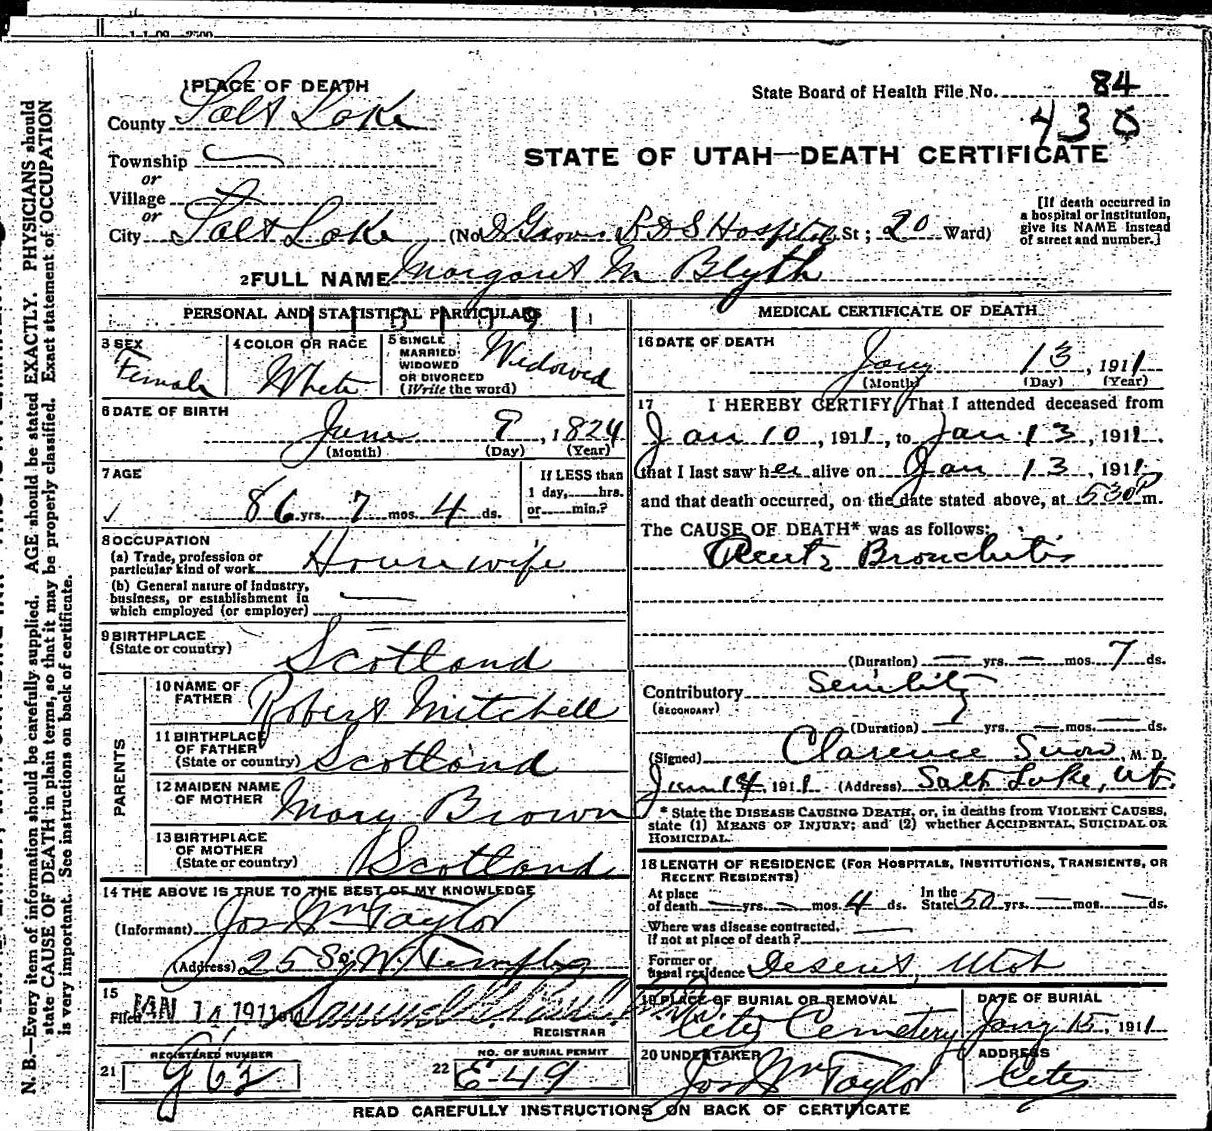 1-1-09-2500
1 PLACE OF DEATH
State Board of Health File No. 84
County Salt Lake
430
STATE OF UTAH—DEATH CERTIFICATE
Township
or
Village
or
City Salt Lake (No. LDS Hospital St; 20 Ward)
[If death occurred in
a hospital or institution,
give its NAME instead
of street and number.]
2 FULL NAME Margaret M Blyth
PERSONAL AND STATISTICAL PARTICULARS
3 SEX
Female
4 COLOR OR RACE
White
5 SINGLE
MARRIED
WIDOWED
OR DIVORCED
(Write the word)
Widowed
6 DATE OF BIRTH
June 9, 1824
(Month) (Day) (Year)
7 AGE
86 yrs. 7 mos. 4 ds.
If LESS than
1 day,......hrs.
or......min.?
8 OCCUPATION
(a) Trade, profession or
particular kind of work Housewife
(b) General nature of industry,
business, or establishment in
which employed (or employer)
9 BIRTHPLACE
(State or country)
Scotland
PARENTS
10 NAME OF
FATHER Robert Mitchell
11 BIRTHPLACE
OF FATHER
(State or country) Scotland
12 MAIDEN NAME
OF MOTHER Mary Brown
13 BIRTHPLACE
OF MOTHER
(State or country) Scotland
14 THE ABOVE IS TRUE TO THE BEST OF MY KNOWLEDGE
(Informant) Jos Wm Taylor
(Address) 25 So W. Temple
15
Filed JAN 14 1911 Samuel
REGISTRAR
21 REGISTERED NUMBER
G 62
22 NO. OF BURIAL PERMIT
E-49
MEDICAL CERTIFICATE OF DEATH
16 DATE OF DEATH
Jany 13, 1911
(Month) (Day) (Year)
17 I HEREBY CERTIFY, That I attended deceased from
Jan 10, 1911, to Jan 13, 1911,
that I last saw her alive on Jan 13, 1911
and that death occurred, on the date stated above, at 530P m.
The CAUSE OF DEATH* was as follows:
Acute Bronchitis
(Duration) — yrs. — mos. 7 ds.
Contributory Senility
(SECONDARY)
(Duration) — yrs. — mos. — ds.
(Signed) Clarence Snow, M. D.
Jan 14, 1911 (Address) Salt Lake, Ut.
* State the DISEASE CAUSING DEATH, or, in deaths from VIOLENT CAUSES,
state (1) MEANS OF INJURY; and (2) whether ACCIDENTAL, SUICIDAL OR
HOMICIDAL.
18 LENGTH OF RESIDENCE (FOR HOSPITALS, INSTITUTIONS, TRANSIENTS, OR
RECENT RESIDENTS)
At place
of death — yrs. — mos. 4 ds.
In the
State 50 yrs. — mos. — ds.
Where was disease contracted,
If not at place of death?
Former or
usual residence Deseret, Utah
19 PLACE OF BURIAL OR REMOVAL
City Cemetery
DATE OF BURIAL
Jany 15, 1911
20 UNDERTAKER
Jos Wm Taylor
ADDRESS
City
READ CAREFULLY INSTRUCTIONS ON BACK OF CERTIFICATE
N. B.—Every item of information should be carefully supplied. AGE should be stated EXACTLY. PHYSICIANS should
state CAUSE OF DEATH in plain terms, so that it may be properly classified. Exact statement of OCCUPATION
is very important. See instructions on back of certificate.